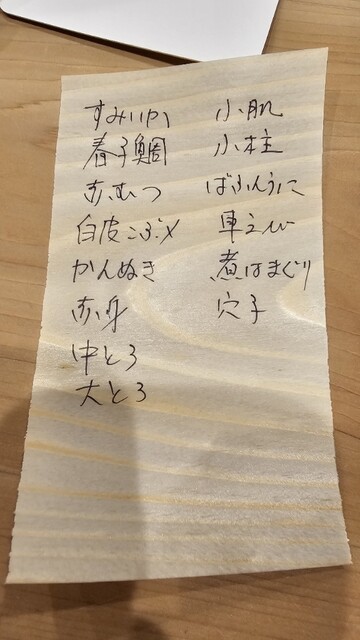 すみいか
春子鯛
赤むつ
白皮こぶ〆
かんぬき
赤身
中とろ
大とろ
小肌
小柱
ばふんうに
車えび
煮はまぐり
穴子